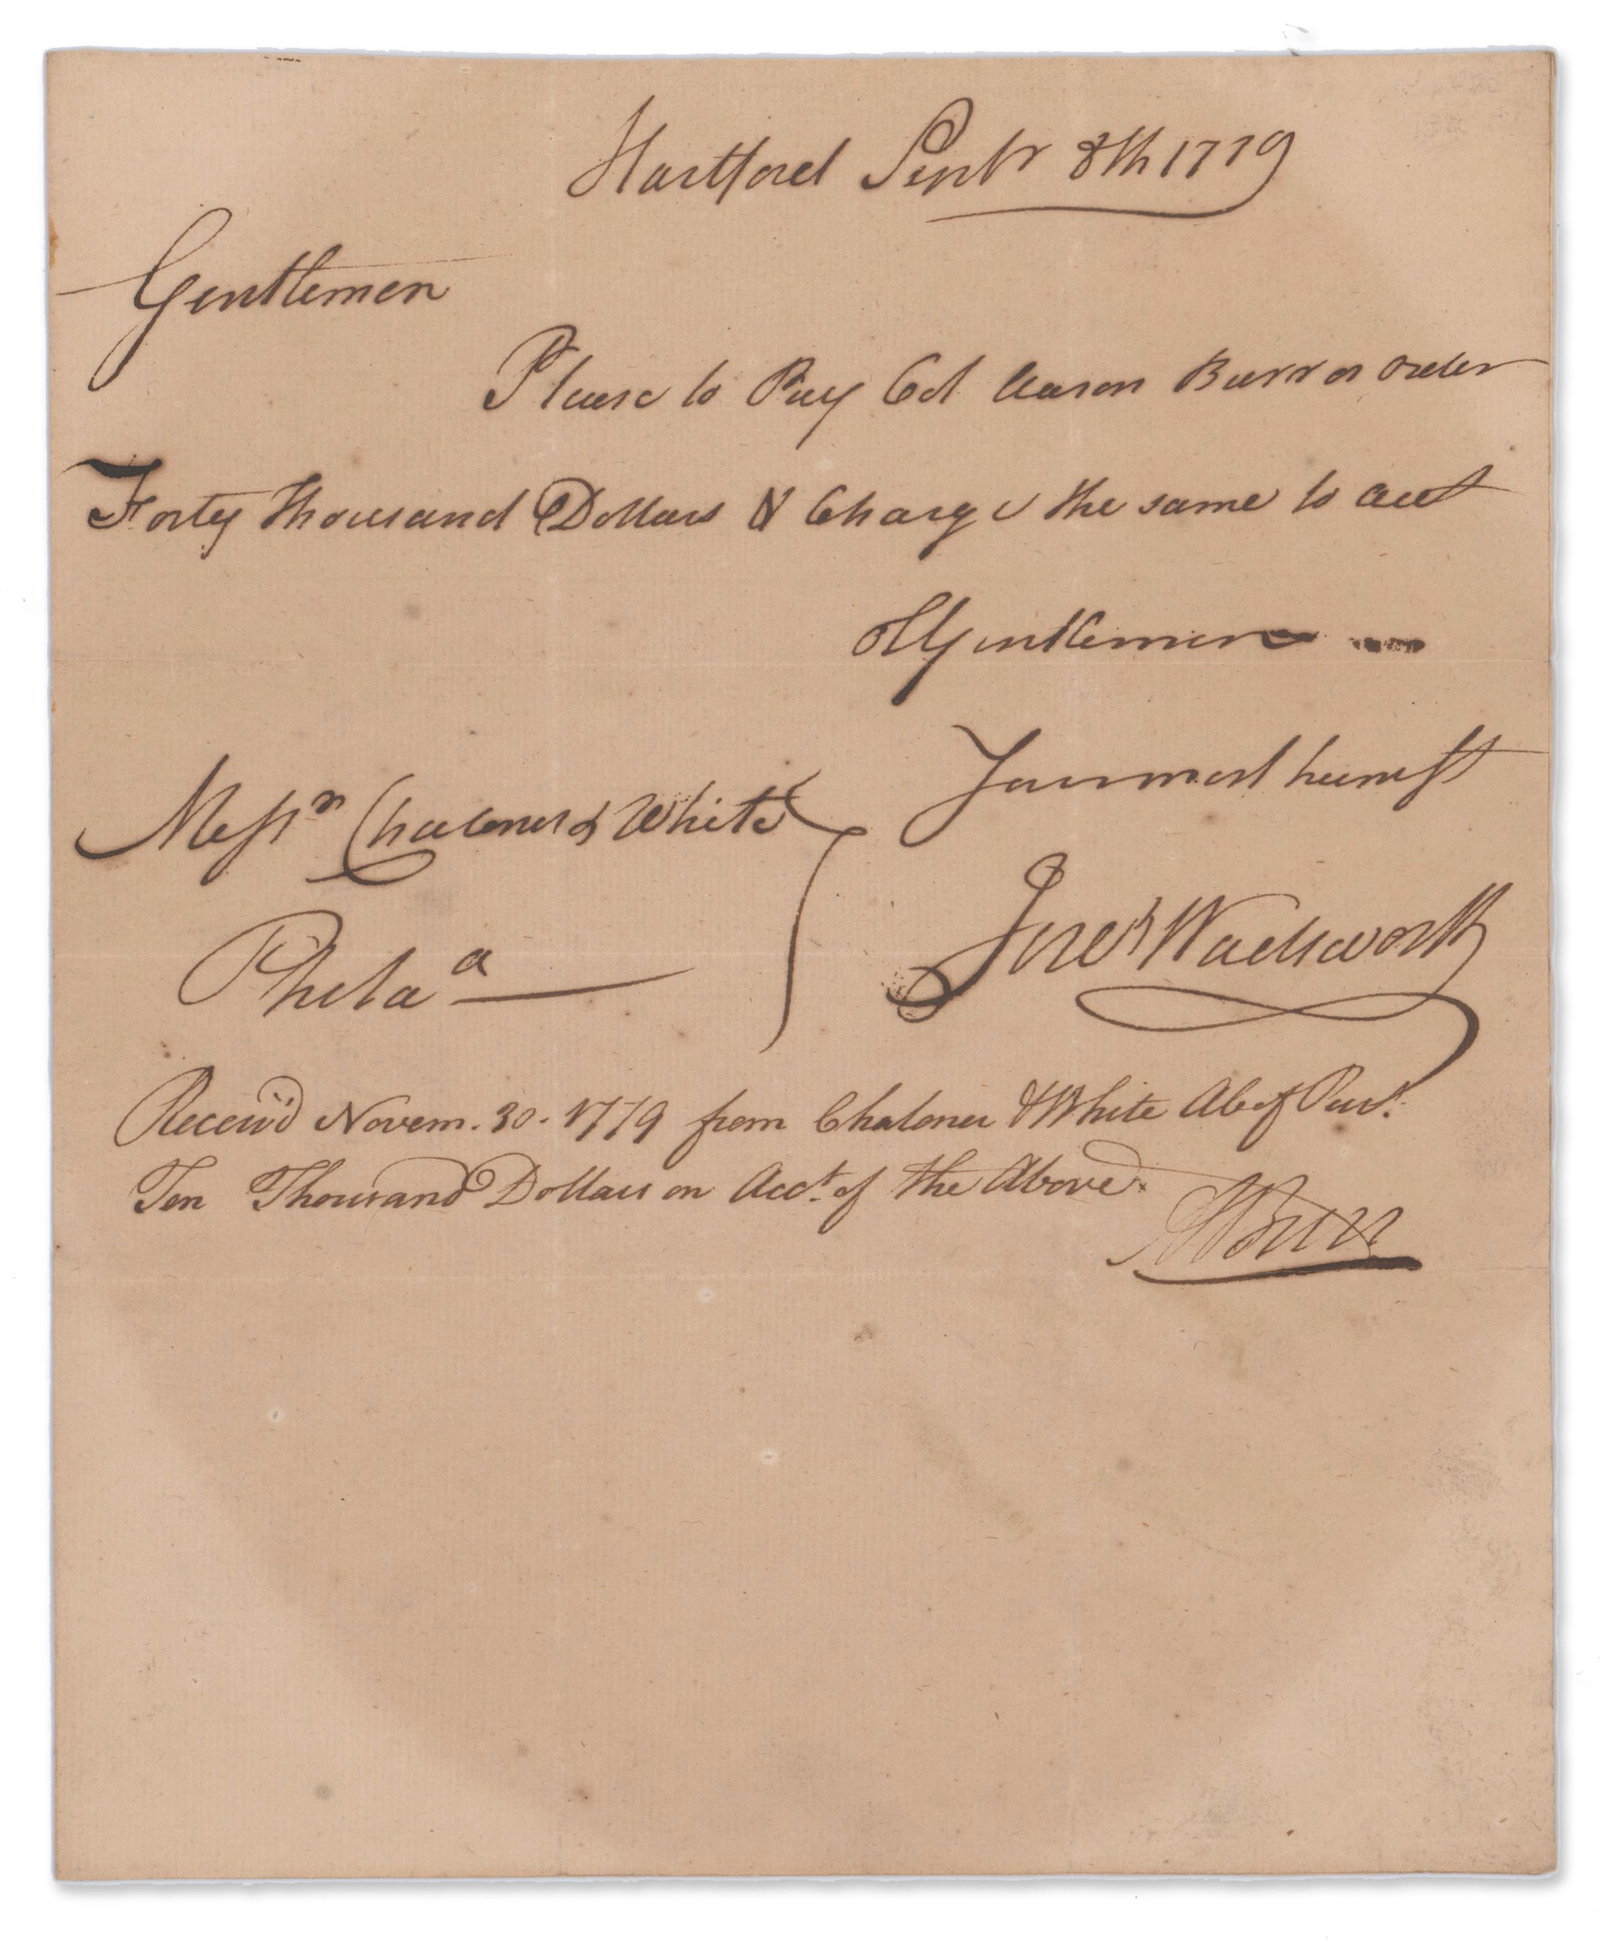 Hartford Septr 8th 1779
Gentlemen
Please to Pay Col Aaron Burr or order
Forty Thousand Dollars & Charge the same to acct
of Gentlemen
Your most humst
Messrs Chaloner & White
Phila a
Jere h Wadsworth
Receiv'd Novem. 30. 1779 from Chaloner & White
Ten Thousand Dollars on Acct. of the Above.
A Burr